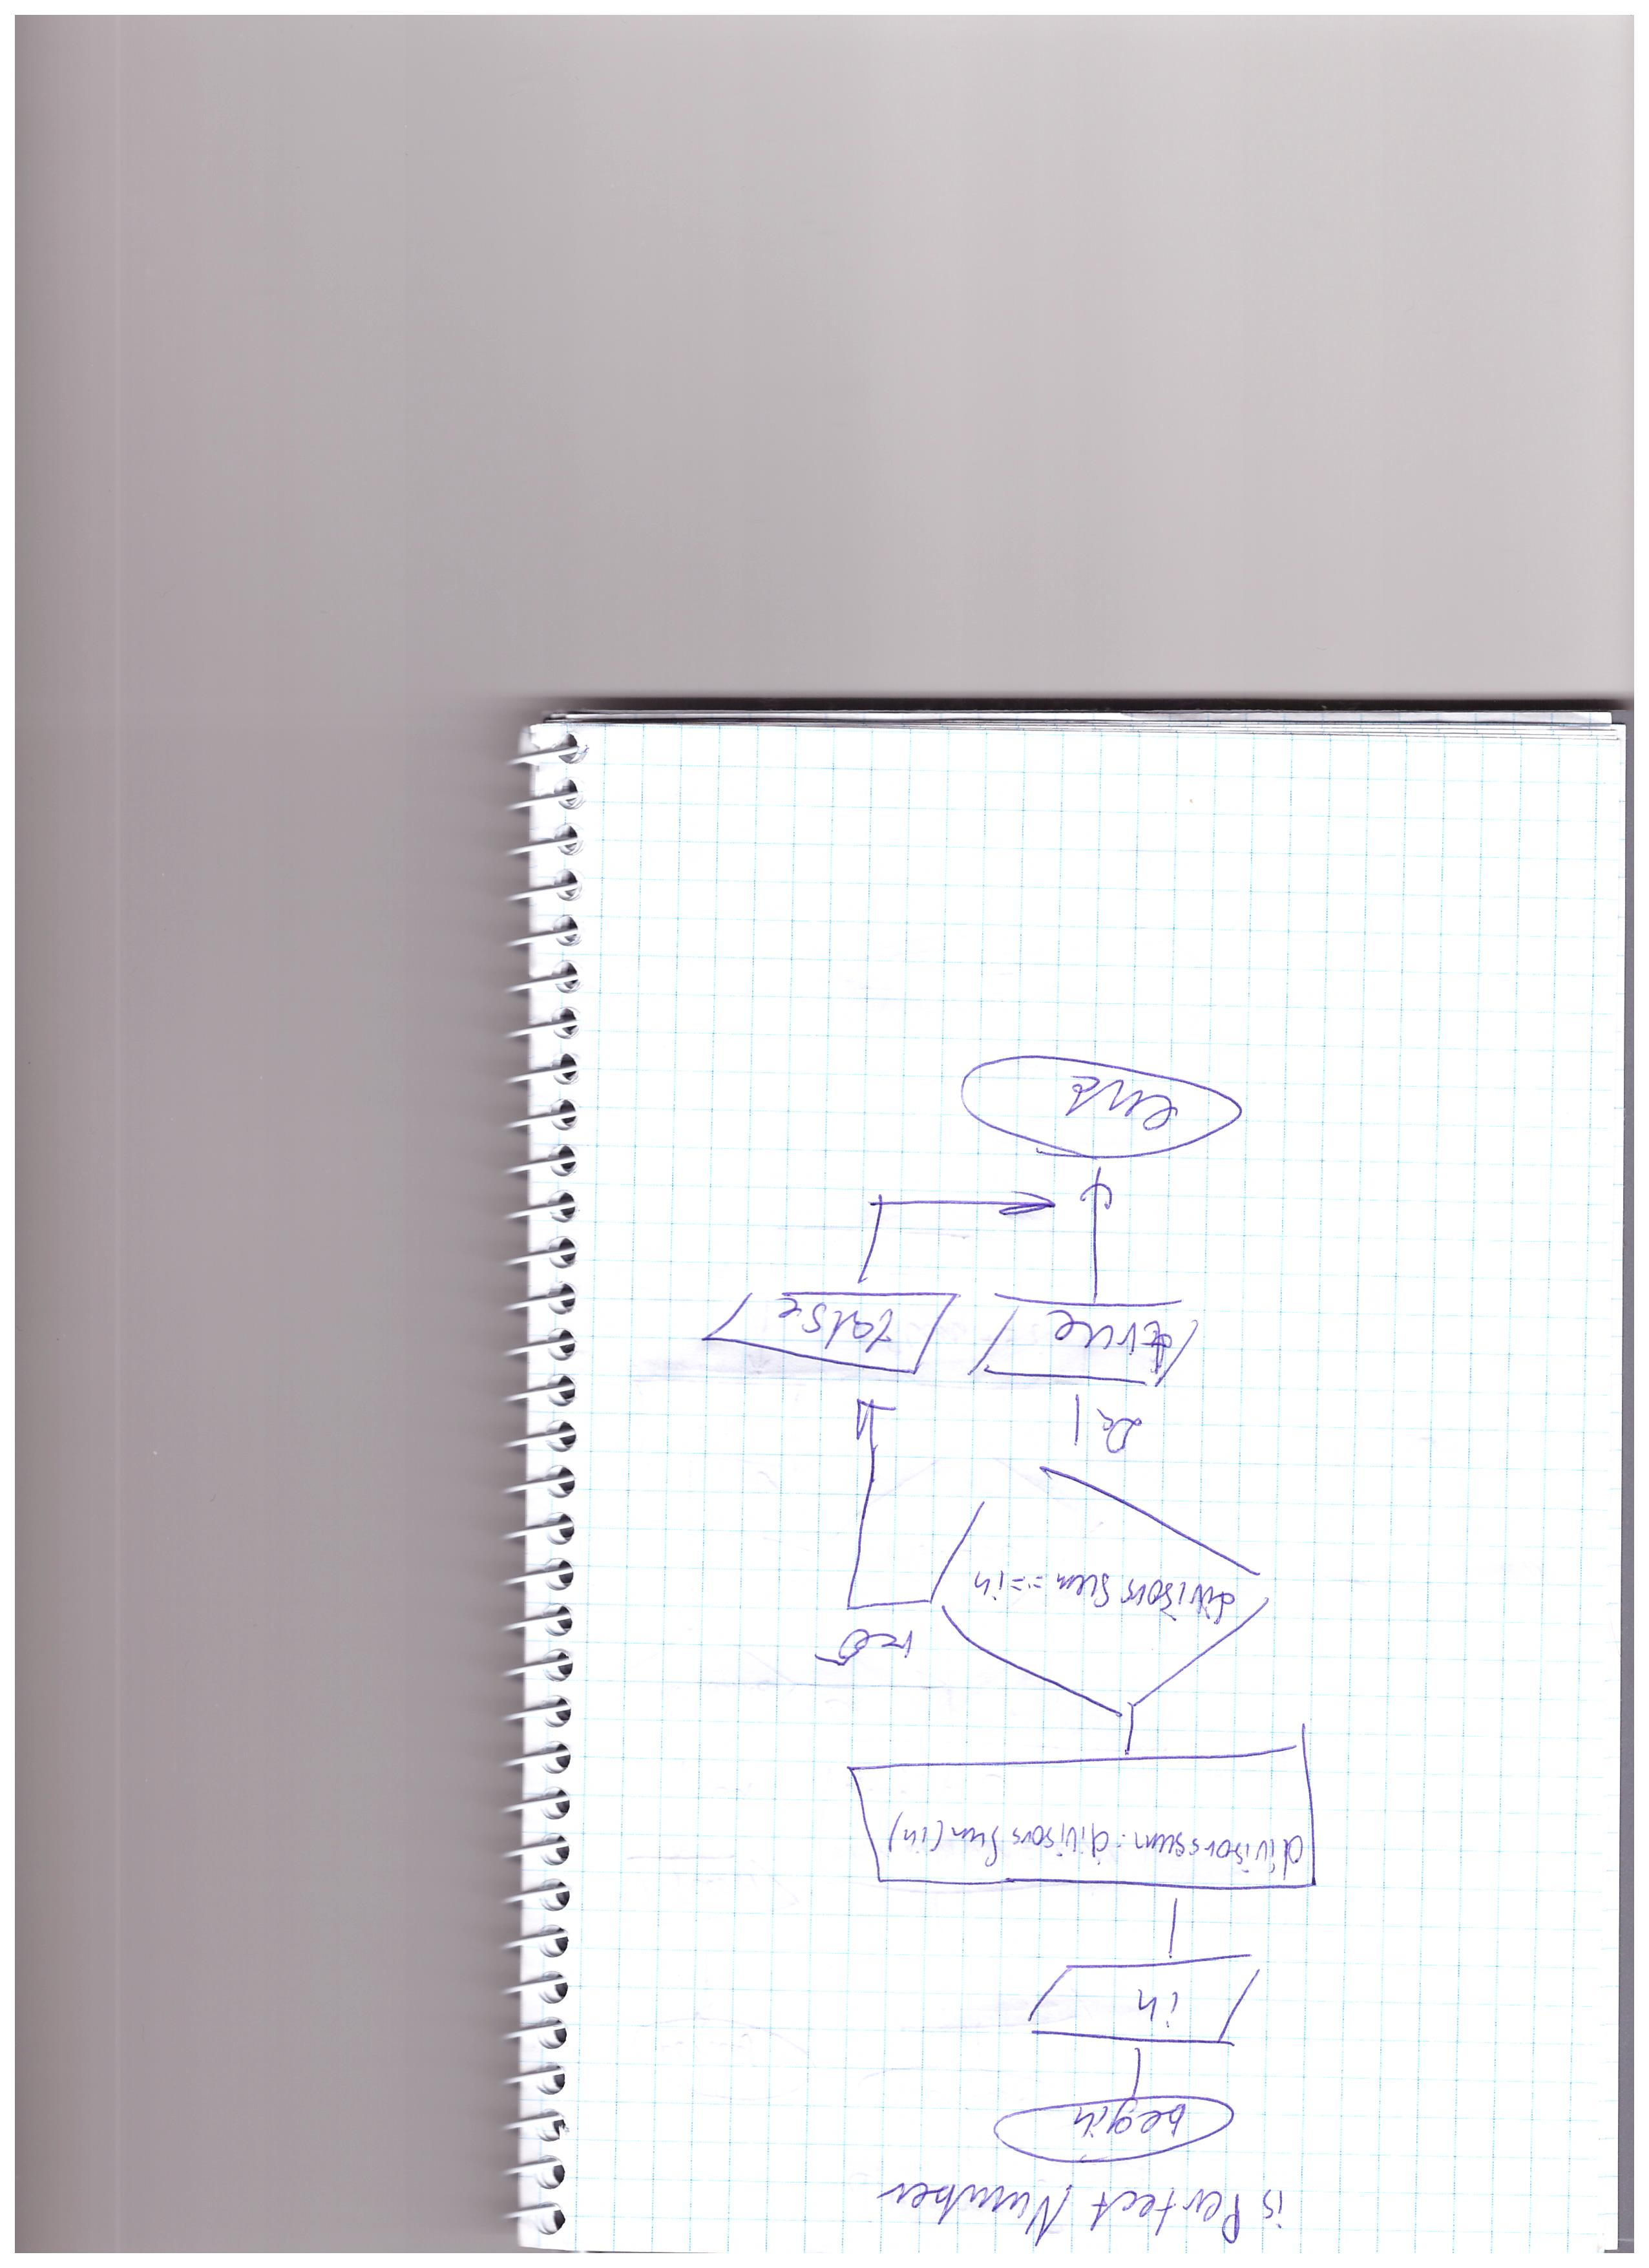 is Perfect Number
begin
in
divisorssum = divisors Sum (in)
divisors Sum == in
Da
true
false
end